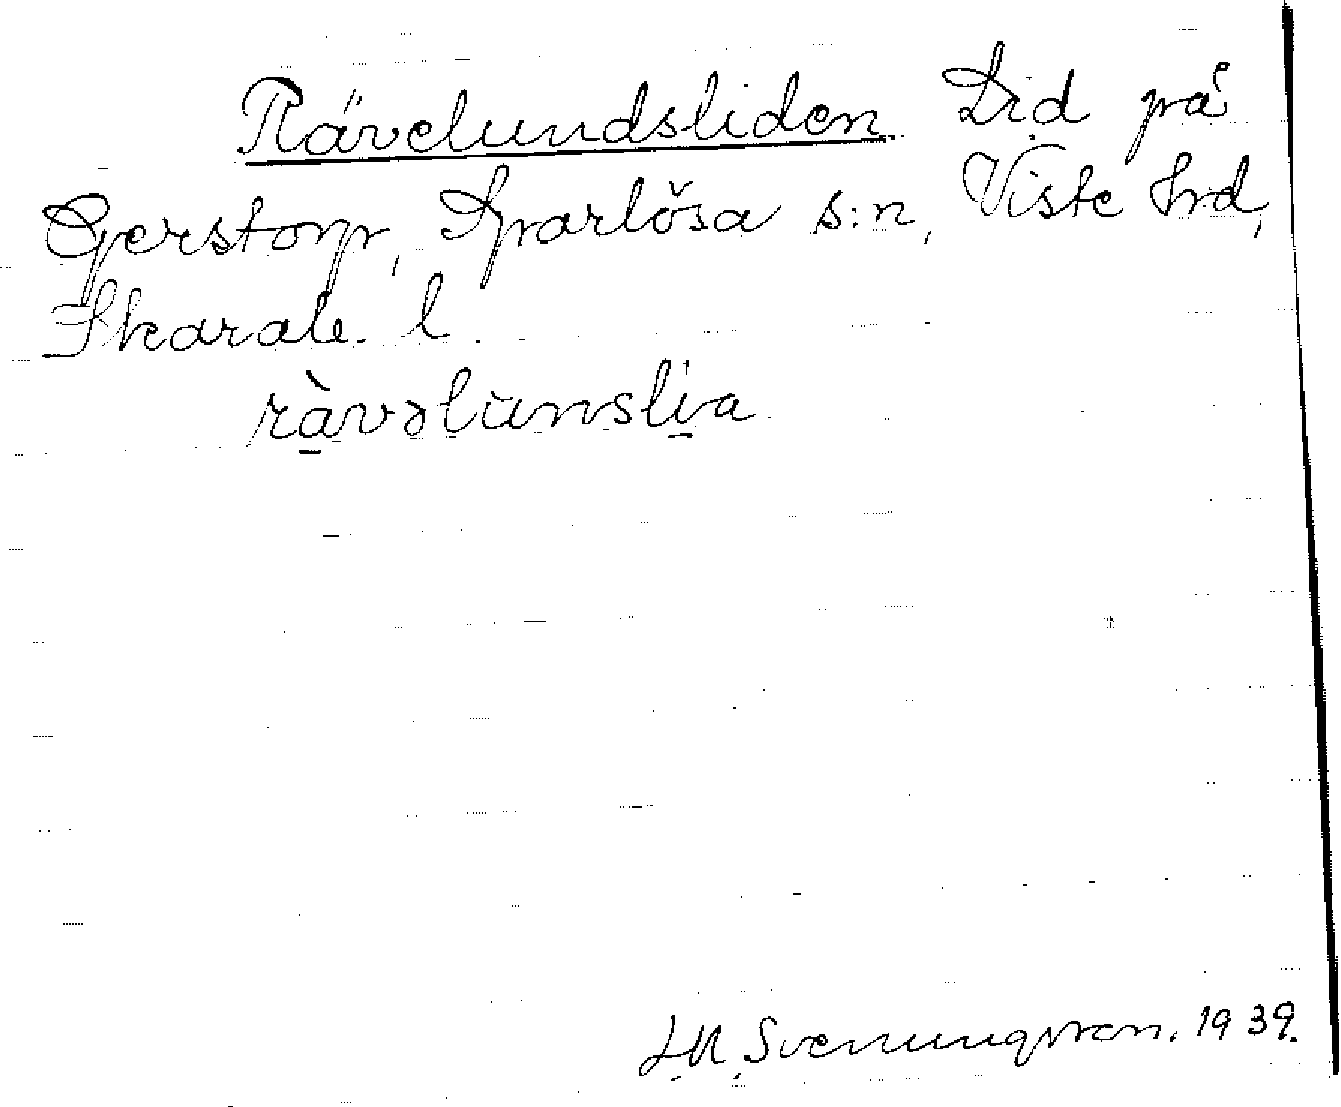 Rävelundsliden Lid på
Gerstorp, Sparlösa s:n, Viste hrd,
Skarab. l.
ràvəlunslia
Svenungsson. 1939.